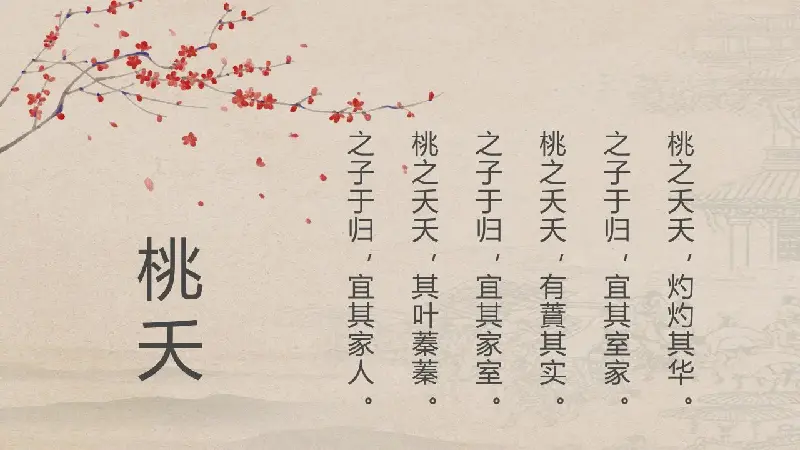 桃夭
桃之夭夭，灼灼其华。
之子于归，宜其室家。
桃之夭夭，有蕡其实。
之子于归，宜其家室。
桃之夭夭，其叶蓁蓁。
之子于归，宜其家人。